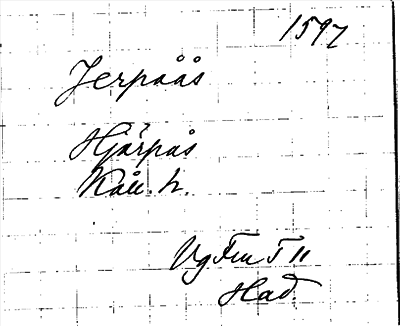 1597
Jerpåås
Hjärpås
Kåll. h.
Vg Fru T 11
Had.